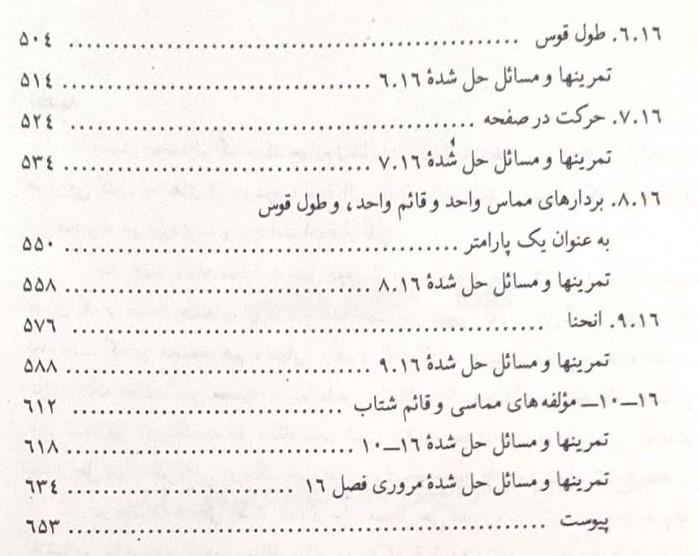 ۶.۱۶. طول قوس ........ ۵۰۴
تمرینها و مسائل حل شدهٔ ۶.۱۶ ........ ۵۱۴
۷.۱۶. حرکت در صفحه ........ ۵۲۴
تمرینها و مسائل حل شدهٔ ۷.۱۶ ........ ۵۳۴
۸.۱۶. بردارهای مماس واحد و قائم واحد، و طول قوس
به عنوان یک پارامتر ........ ۵۵۰
تمرینها و مسائل حل شدهٔ ۸.۱۶ ........ ۵۵۸
۹.۱۶. انحنا ........ ۵۷۶
تمرینها و مسائل حل شدهٔ ۹.۱۶ ........ ۵۸۸
۱۶ــ۱۰ــ مؤلفه های مماسی و قائم شتاب ........ ۶۱۲
تمرینها و مسائل حل شدهٔ ۱۶ــ۱۰ ........ ۶۱۸
تمرینها و مسائل حل شدهٔ مروری فصل ۱۶ ........ ۶۳۴
پیوست ........ ۶۵۳